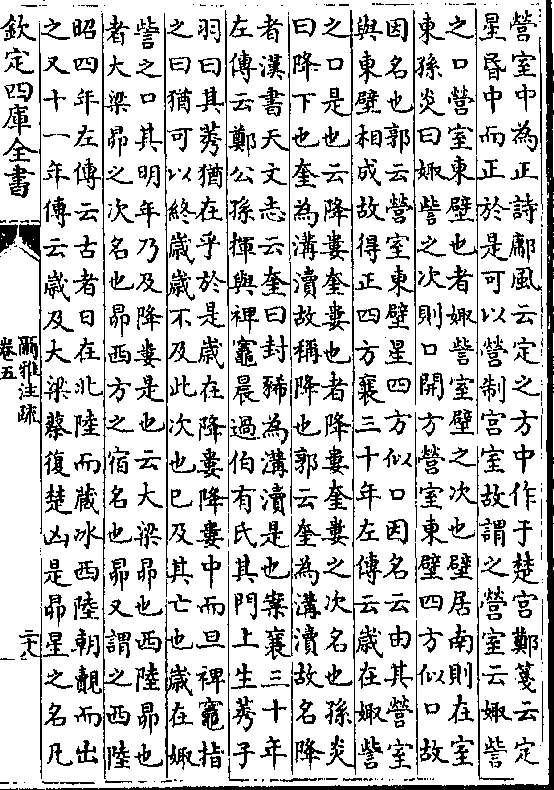 營室中為正詩鄘風云定之方中作于楚宮鄭箋云定
星昬中而正於是可以營制宫室故謂之營室云娵訾
之口營室東壁也者娵訾室壁之次也壁居南則在室
東孫炎曰娵訾之次則口開方營室東壁四方似口故
因名也郭云營室東壁星四方似口因名云由其營室
與東壁相成故得正四方襄三十年左傳云歲在娵訾
之口是也云降婁奎婁也者降婁奎婁之次名也孫炎
曰降下也奎為溝瀆故稱降也郭云奎為溝瀆故名降
者漢書天文志云奎曰封豨為溝瀆是也案襄三十年
左傳云鄭公孫揮與裨竈晨過伯有氏其門上生莠子
羽曰其莠猶在乎於是歲在降婁降婁中而旦裨竈指
之曰猶可以終歲歲不及此次也已及其亡也歲在娵
訾之口其明年乃及降婁是也云大梁昴也西陸昴也
者大梁昴之次名也昴西方之宿名也昴又謂之西陸
昭四年左傳云古者日在北陸而藏冰西陸朝覿而出
之又十一年傳云歲及大梁蔡復楚凶是昴星之名凡
欽定四庫全書
爾雅注疏
卷五
二十八